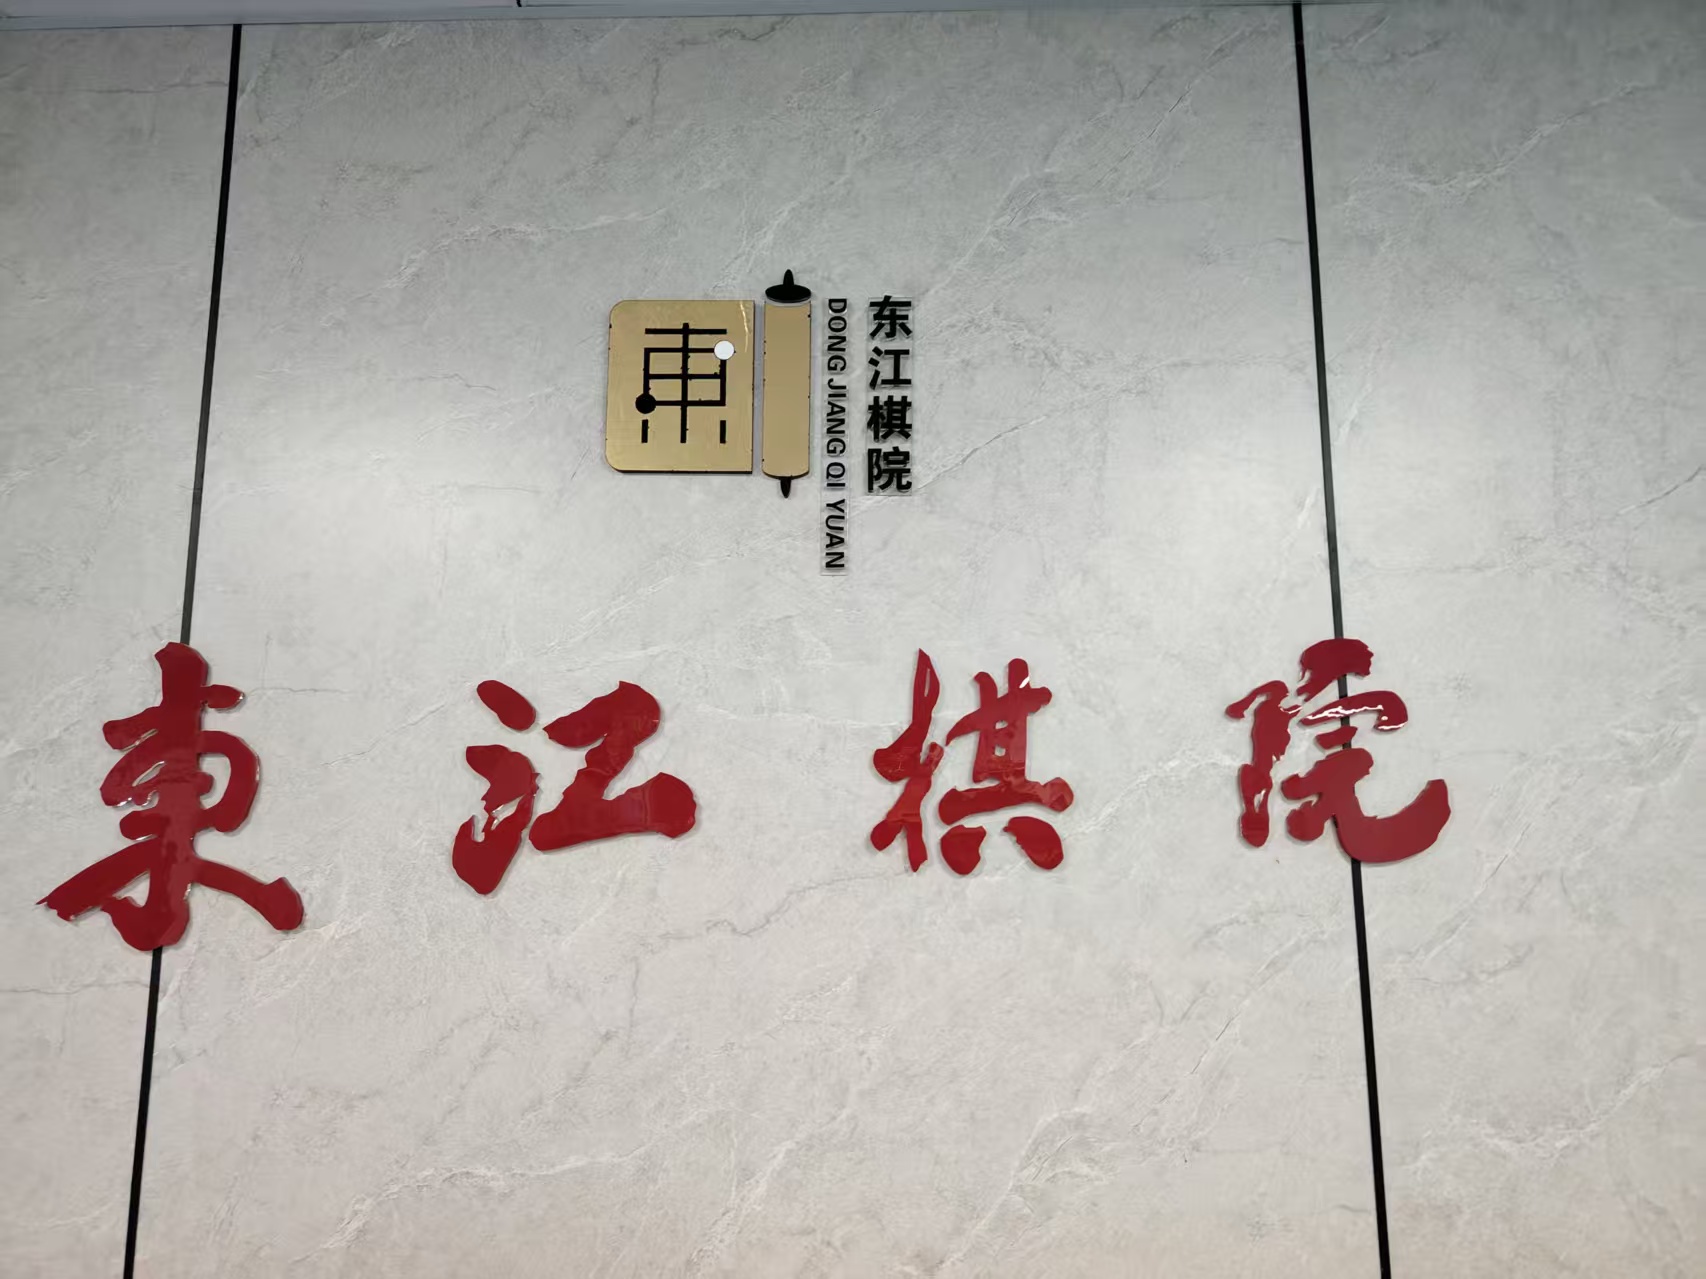 東
东江棋院
DONG JIANG QI YUAN
東江棋院